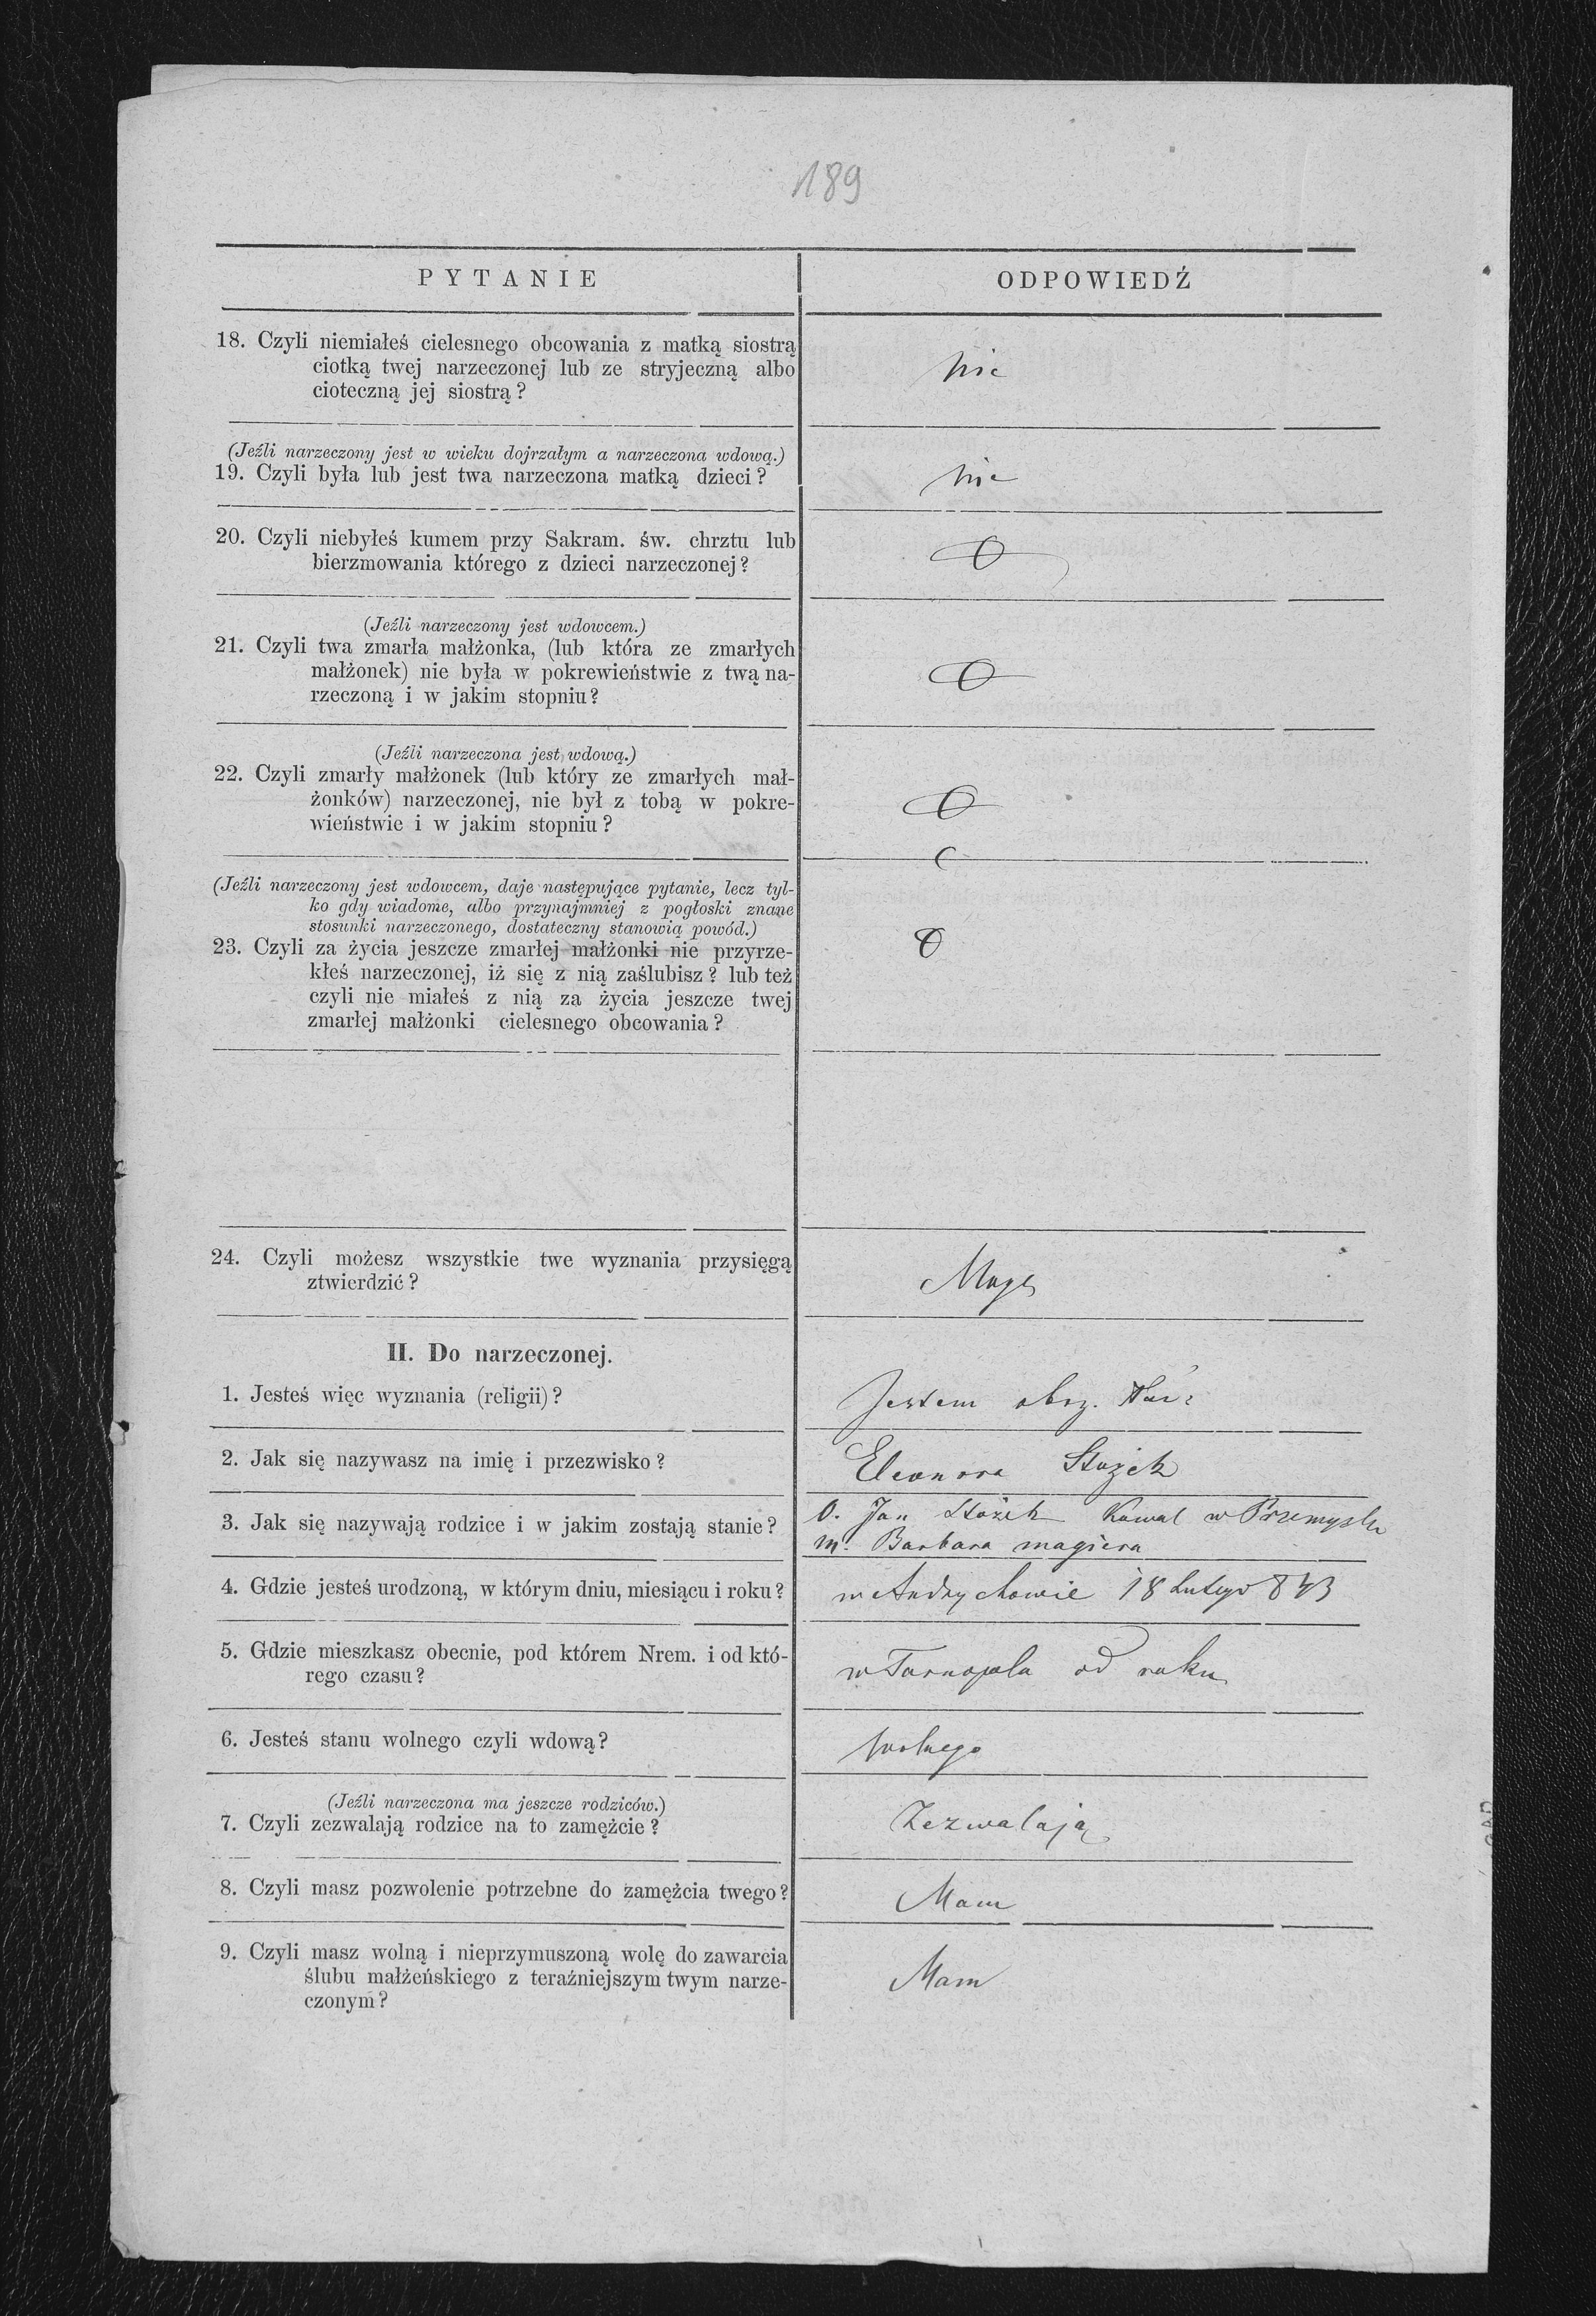 189
PYTANIE
ODPOWIEDŹ
18. Czyli niemiałeś cielesnego obcowania z matką siostrą
ciotką twej narzeczonej lub ze stryjeczną albo
cioteczną jej siostrą?
nie
(Jeźli narzeczony jest w wieku dojrzałym a narzeczona wdową.)
19. Czyli była lub jest twa narzeczona matką dzieci?
nie
20. Czyli niebyłeś kumem przy Sakram. św. chrztu lub
bierzmowania którego z dzieci narzeczonej?
(Jeźli narzeczony jest wdowcem.)
21. Czyli twa zmarła małżonka, (lub która ze zmarłych
małżonek) nie była w pokrewieństwie z twą na-
rzeczoną i w jakim stopniu?
(Jeźli narzeczona jest wdową.)
22. Czyli zmarły małżonek (lub który ze zmarłych mał-
żonków) narzeczonej, nie był z tobą w pokre-
wieństwie i w jakim stopniu?
(Jeźli narzeczony jest wdowcem, daje następujące pytanie, lecz tyl-
ko gdy wiadome, albo przynajmniej z pogłoski znane
stosunki narzeczonego, dostateczny stanowią powód.)
23. Czyli za życia jeszcze zmarłej małżonki nie przyrze-
kłeś narzeczonej, iż się z nią zaślubisz? lub też
czyli nie miałeś z nią za życia jeszcze twej
zmarłej małżonki cielesnego obcowania?
24. Czyli możesz wszystkie twe wyznania przysięgą
ztwierdzić?
Mogę
II. Do narzeczonej.
1. Jesteś więc wyznania (religii)?
Jestem obrz.
2. Jak się nazywasz na imię i przezwisko?
Eleonora Stożek
3. Jak się nazywają rodzice i w jakim zostają stanie?
O. Jan Stożek Kowal w Przemyślu
m. Barbara magiera
4. Gdzie jesteś urodzoną, w którym dniu, miesiącu i roku?
w Andrychowie 18 Lutego 843
5. Gdzie mieszkasz obecnie, pod którem Nrem. i od któ-
rego czasu?
w Tarnopolu od roku
6. Jesteś stanu wolnego czyli wdową?
wolnego
(Jeźli narzeczona ma jeszcze rodziców.)
7. Czyli zezwalają rodzice na to zamęźcie?
Zezwalają
8. Czyli masz pozwolenie potrzebne do zamęźcia twego?
Mam
9. Czyli masz wolną i nieprzymuszoną wolę do zawarcia
ślubu małżeńskiego z teraźniejszym twym narze-
czonym?
Mam